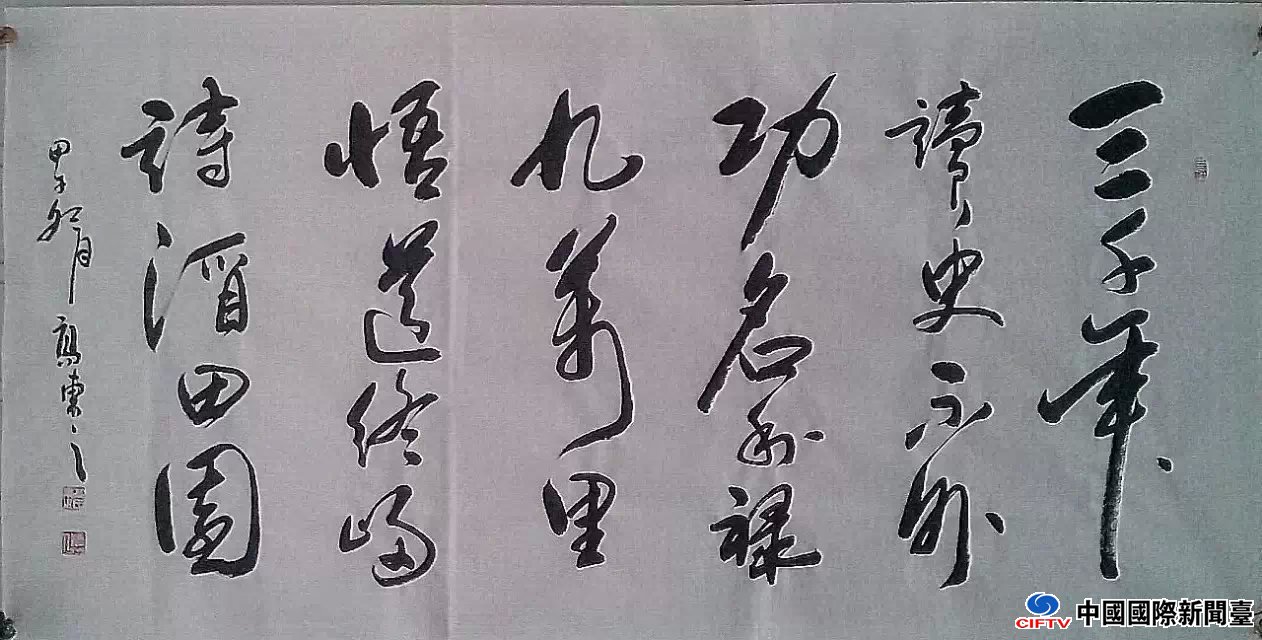 三千年
讀史不外
功名利禄
九萬里
悟道終歸
詩酒田園
甲午秋月 高東之
CIFTV 中國國際新聞臺